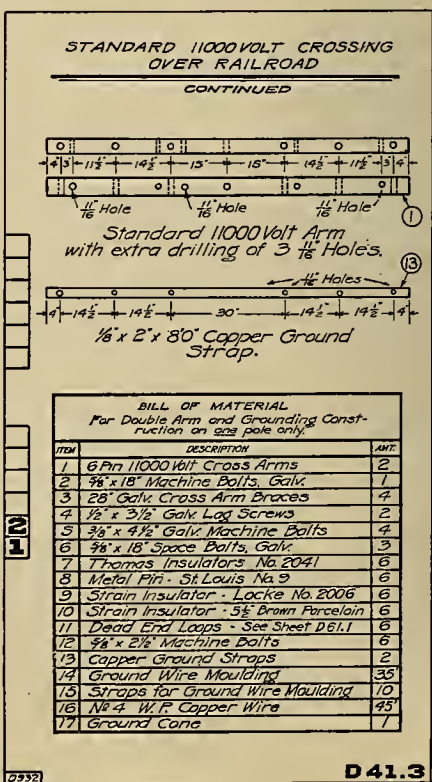 STANDARD 11000 VOLT CROSSING
OVER RAILROAD
CONTINUED
4" 3" 11½" 14½" 15" 15" 14½" 11½" 3" 4"
11/16" Hole 11/16" Hole 11/16" Hole
1
Standard 11000 Volt Arm
with extra drilling of 3 11/16" Holes.
11/16" Holes
13
4" 14½" 14½" 30" 14½" 14½" 4"
⅛" x 2" x 8'0" Copper Ground
Strap.
BILL OF MATERIAL
For Double Arm and Grounding Const-
ruction on one pole only.
ITEM DESCRIPTION AMT.
1 6 Pin 11000 Volt Cross Arms 2
2 ⅝" x 18" Machine Bolts, Galv. 1
3 28" Galv. Cross Arm Braces 4
4 ½" x 3½" Galv. Lag Screws 2
5 ⅜" x 4½" Galv. Machine Bolts 4
6 ⅝" x 18" Space Bolts, Galv. 3
7 Thomas Insulators No. 2041 6
8 Metal Pin - St. Louis No. 9 6
9 Strain Insulator - Locke No. 2006 6
10 Strain Insulator - 5½" Brown Porcelain 6
11 Dead End Loops - See Sheet D61.1 6
12 ⅝" x 2½" Machine Bolts 6
13 Copper Ground Straps 2
14 Ground Wire Moulding 35'
15 Straps for Ground Wire Moulding 10
16 No 4 W.P. Copper Wire 45'
17 Ground Cone 1
2
1
D41.3